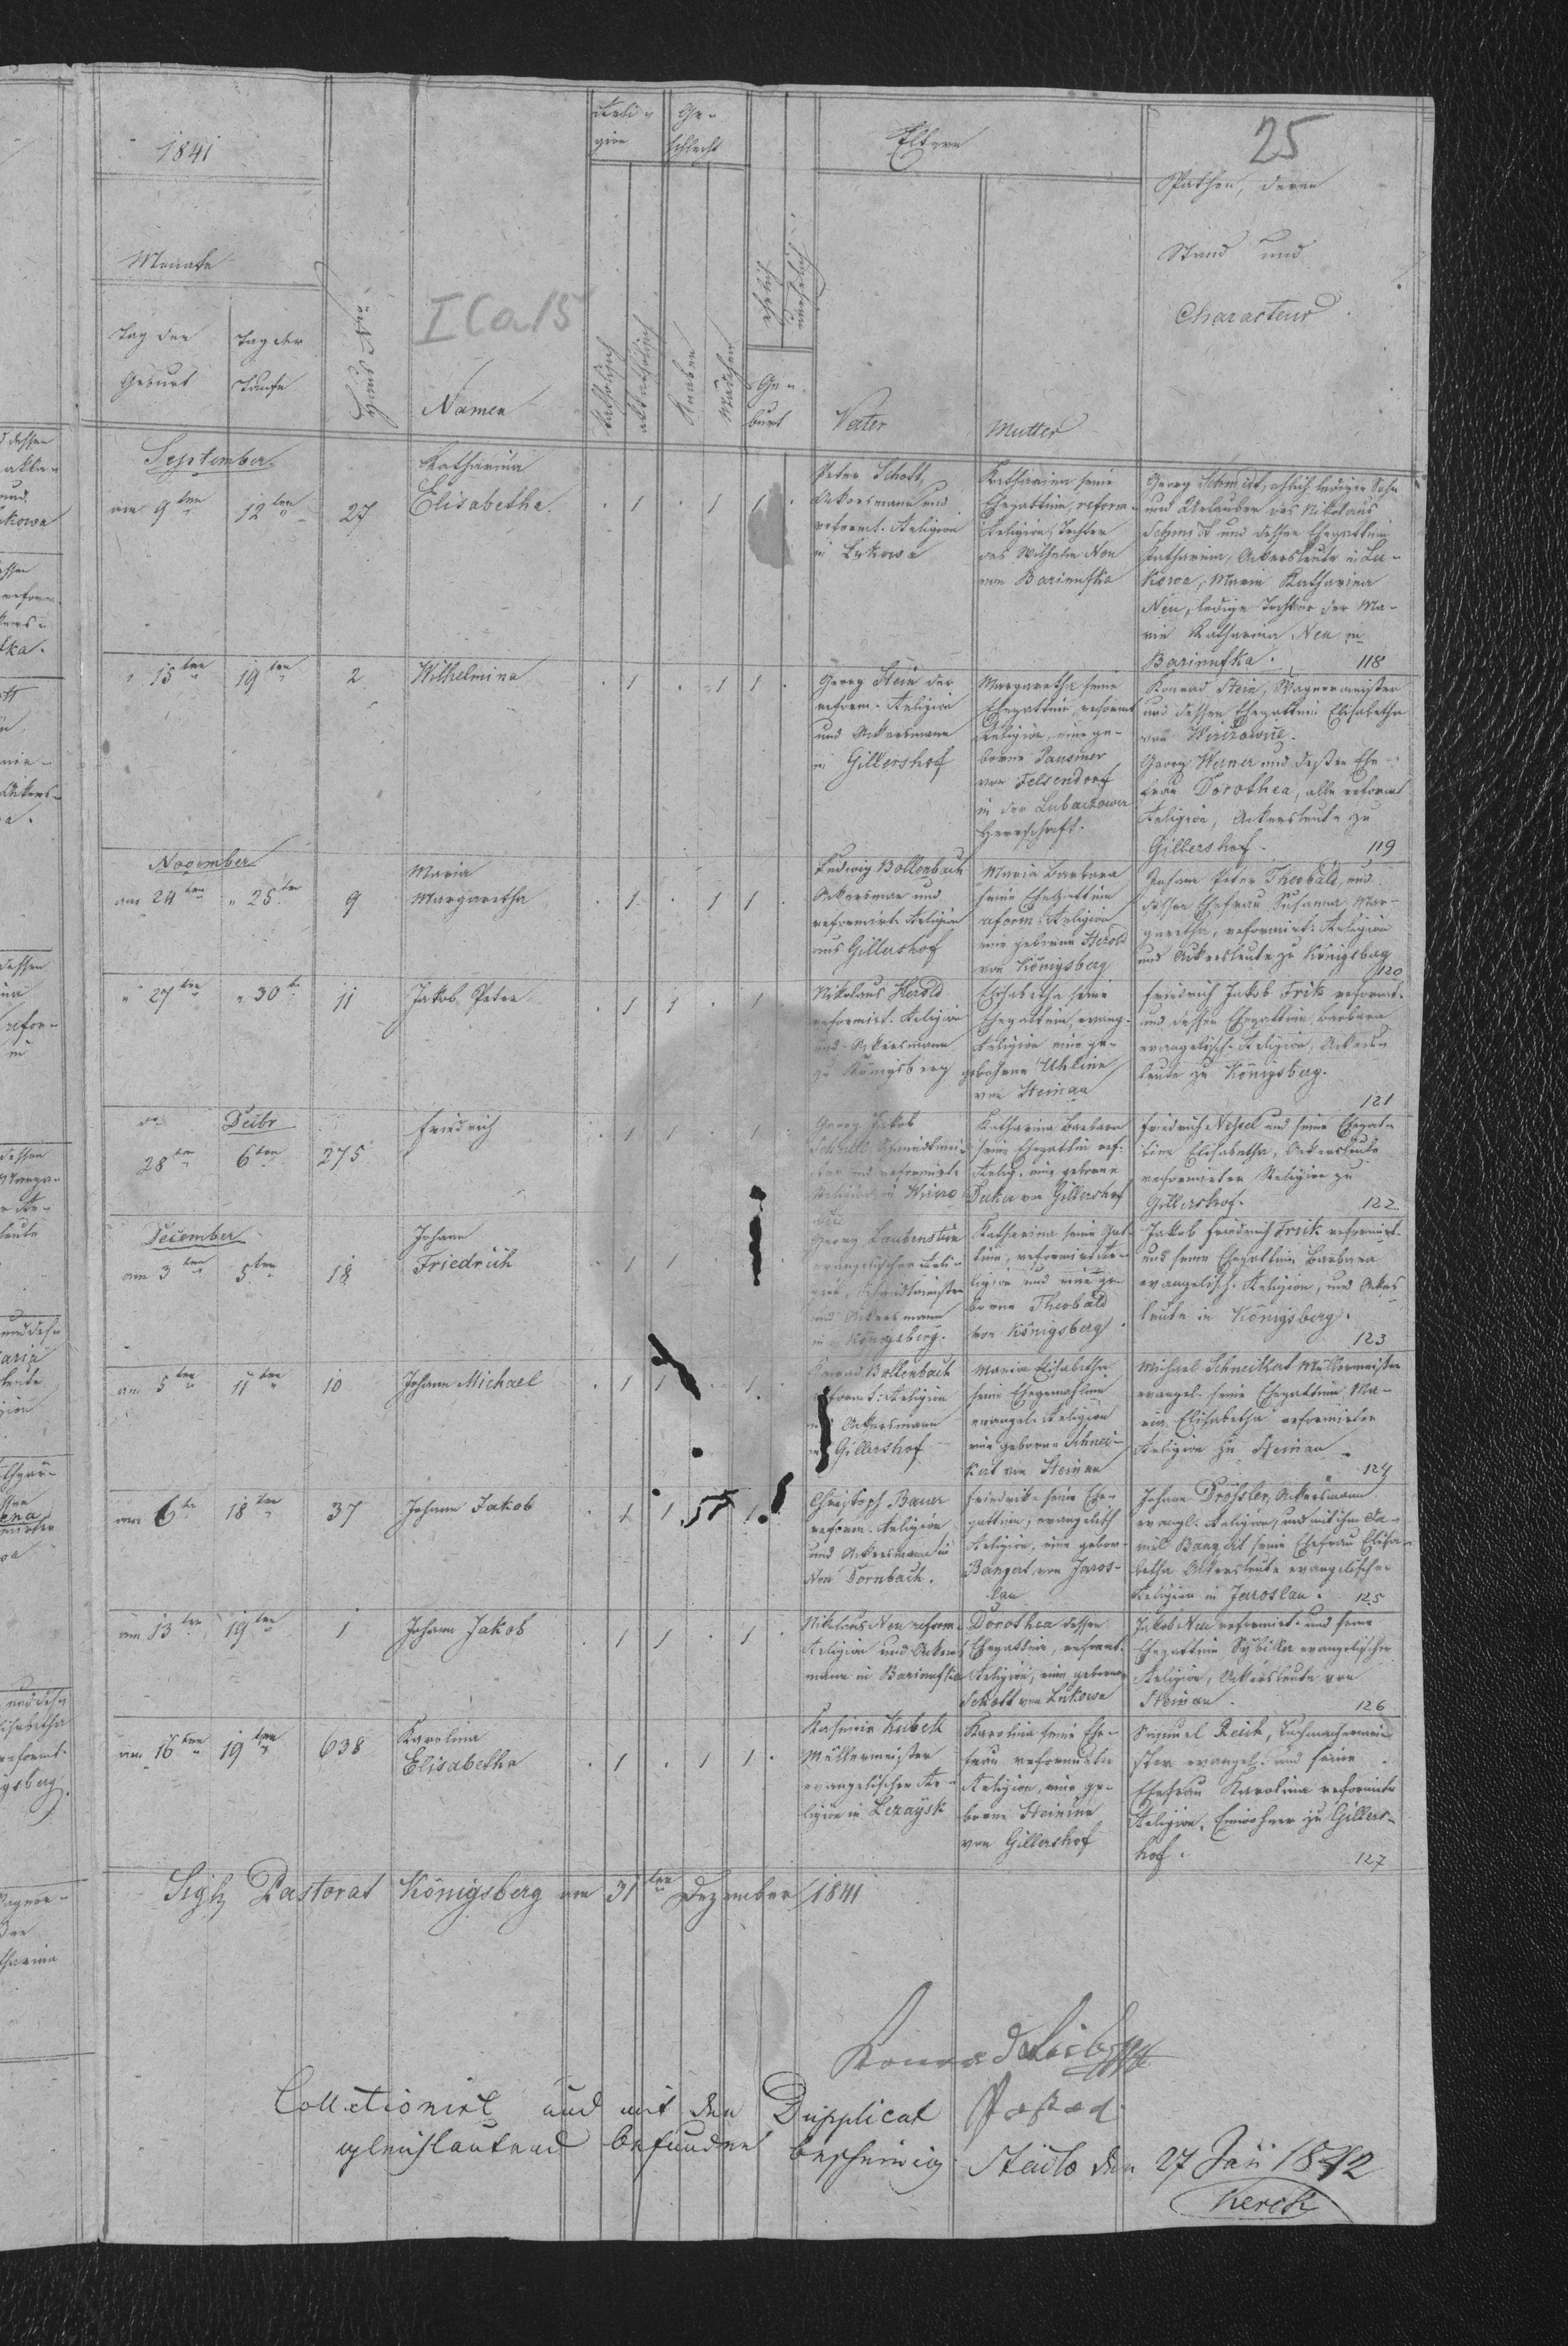 1841
25
Religion
Geschlecht
Eltern
Pathen, deren
Stand und
Characteur
Monate
Tag der
Geburt
Tag der
Taufe
Haus Nro
Namen
katholisch
akatholisch
Knaben
Mädchen
ehelich
unehelich
Ge-
burt
Vater
Mutter
September
am 9ten 12ten 27
Katharina
Elisabetha
1 1 1
Peter Schott,
Ackersmann und
reformt. Religion
in Lukowa
Katharina seine
Ehegattinn, reform.
Religion, Tochter
des Wilhelm Neu
von Barinufka
Georg Schmidt, ehlich lediger Sohn
und Urlauber des Nikolaus
Schmidt und dessen Ehegattin
Katharina, Ackersleute in Lu-
kowa, Maria Katharina
Neu, ledige Tochter der Ma-
rie Katharina Neu in
Barinufka. 118
15ten 19ten 2 Wilhelmina
1 1 1
Georg Stein der
reform. Religion
und Ackersmann
in Gillershof
Margaretha seine
Ehegattinn, reformt
Religion, eine ge-
borne
von Felsendorf
in der Lubaczower
Herrschaft.
Konrad Stein, Wagnermeister
und dessen Ehegattin Elisabetha
von
Georg Werner und dessen Ehe-
frau Dorothea, alle reformt
Religion, Ackersleute zu
Gillershof. 119
November
am 24ten " 25ten 9
Maria
Margaretha
1 1 1
Ludwig Bollenbach
Ackersmann und
reformirt. Religion
aus Gillershof
Maria Barbara
seine Ehegattinn
reform: Religion
eine geborne Herold
von Königsberg
Johann Peter Theobald, und
dessen Ehefrau Susanna Mar-
garetha, reformirt. Religion
und Ackersleute zu Königsberg
120
" 27ten " 30te 11 Jakob Peter
1 1 1
Nikolaus Herold
reformirt. Religion
und Ackersmann
zu Königsberg
Elisabetha seine
Ehegattinn, evang.
Religion eine ge-
bohrne Uhlinn
von Steinau
Friedrich Jakob Frik reformt.
und dessen Ehegattinn Barbara
evangelisch. Religion, Ackers-
leute zu Königsberg.
121
Deibr
28ten 6ten 275 Friedrich
1 1 1
Georg Jakob
und reformirt.
Religion in
Katharina Barbara
seine Ehegattin ref.
Relig. eine geborne
von Gillershof
Friedrich Nessel und seine Ehegat-
tinn Elisabetha, Ackersleute
reformirter Religion zu
Gillershof. 122
December
am 3ten 5ten 18
Johann
Friedrich
1 1
Georg Laubenstein
evangelischer Reli-
gion, Schmidtmeister
und Ackersmann
in Königsberg.
Katharina seine Gat-
tinn, reformirt. Re-
ligion und eine ge-
borne Theobald
von Königsberg
Jakob Friedrich Frik reformirt.
und seine Ehegattinn Barbara
evangelisch. Religion, und Ackers
leute in Königsberg.
123
am 5ten 11ten 10 Johann Michael
1 1 1
Konrad Bollenbach
reformt: Religion
Ackersmann
in Gillershof
Maria Elisabetha
seine Ehegemahlinn
evangel. Religion
eine geborne Schnei-
kert von Steinau
Michael Schneikert Müllermeister
evangel. seine Ehegattinn Ma-
ria Elisabetha reformirter
Religion zu Steinau
124
am 6te 18ten 37 Johann Jakob
1 1 1
Christoph Bauer
reform. Religion
und Ackersmann in
Neu Dornbach.
Friedrike seine Ehe-
gattinn, evangelisch
Religion, eine gebor-
Bangert von Jaros-
lau
Johann Drössler, Ackersmann
evangl. Religion, und mit ihm Da-
niel Bangert seine Ehefrau Elisa-
betha Ackersleute evangelischer
Religion in Jaroslau. 125
am 13ten 19ten 1 Johann Jakob
1 1 1
Nikolaus Neu reform.
Religion und Ackers
mann in Barinufka
Dorothea dessen
Ehegattinn, reformt.
Religion, eine geborne
Schott von Lukowa
Jakob Neu reformirt. und seine
Ehegattinn Sybilla evangelischer
Religion, Ackersleute von
Steinau. 126
am 16ten 19ten 638
Karolina
Elisabetha
1 1 1
Kasimir Kubek
Müllermeister
evangelischer Re-
ligion in Lezaysk
Karolina seine Ehe-
frau reformirter
Religion, eine ge-
borne Steininn
von Gillershof
Samuel Reich, Tuchmachermei-
ster evangel. und seine
Ehefrau Karolina reformirte
Religion, Einwohner zu Gillers-
hof. 127
Sigl. Pastorat Königsberg am 31ten Dezember 1841
Konrad
Pastor
Collationirt und mit den Dupplicat
gleichlautend befunden bescheinig Stadlo den 27 Jän 1842